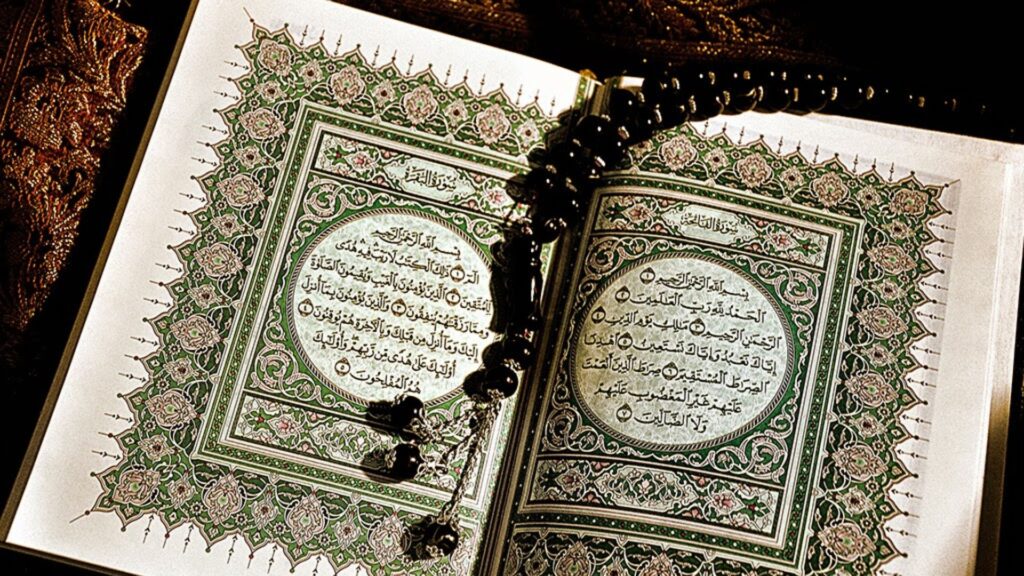 سُورَةُ الْفَاتِحَةِ
بِسْمِ ٱللَّهِ ٱلرَّحْمَٰنِ ٱلرَّحِيمِ ١
ٱلْحَمْدُ لِلَّهِ رَبِّ ٱلْعَٰلَمِينَ ٢
ٱلرَّحْمَٰنِ ٱلرَّحِيمِ ٣ مَٰلِكِ يَوْمِ ٱلدِّينِ ٤
إِيَّاكَ نَعْبُدُ وَإِيَّاكَ نَسْتَعِينُ ٥ ٱهْدِنَا
ٱلصِّرَٰطَ ٱلْمُسْتَقِيمَ ٦ صِرَٰطَ ٱلَّذِينَ أَنْعَمْتَ
عَلَيْهِمْ غَيْرِ ٱلْمَغْضُوبِ عَلَيْهِمْ
وَلَا ٱلضَّآلِّينَ ٧
سُورَةُ الْبَقَرَةِ
بِسْمِ ٱللَّهِ ٱلرَّحْمَٰنِ ٱلرَّحِيمِ
الٓمٓ ١ ذَٰلِكَ ٱلْكِتَٰبُ لَا رَيْبَ فِيهِ هُدًى
لِّلْمُتَّقِينَ ٢ ٱلَّذِينَ يُؤْمِنُونَ بِٱلْغَيْبِ وَيُقِيمُونَ ٱلصَّلَوٰةَ
وَمِمَّا رَزَقْنَٰهُمْ يُنفِقُونَ ٣ وَٱلَّذِينَ يُؤْمِنُونَ بِمَآ أُنزِلَ
إِلَيْكَ وَمَآ أُنزِلَ مِن قَبْلِكَ وَبِٱلْءَاخِرَةِ هُمْ يُوقِنُونَ ٤
أُو۟لَٰٓئِكَ عَلَىٰ هُدًى مِّن رَّبِّهِمْ وَأُو۟لَٰٓئِكَ
هُمُ ٱلْمُفْلِحُونَ ٥